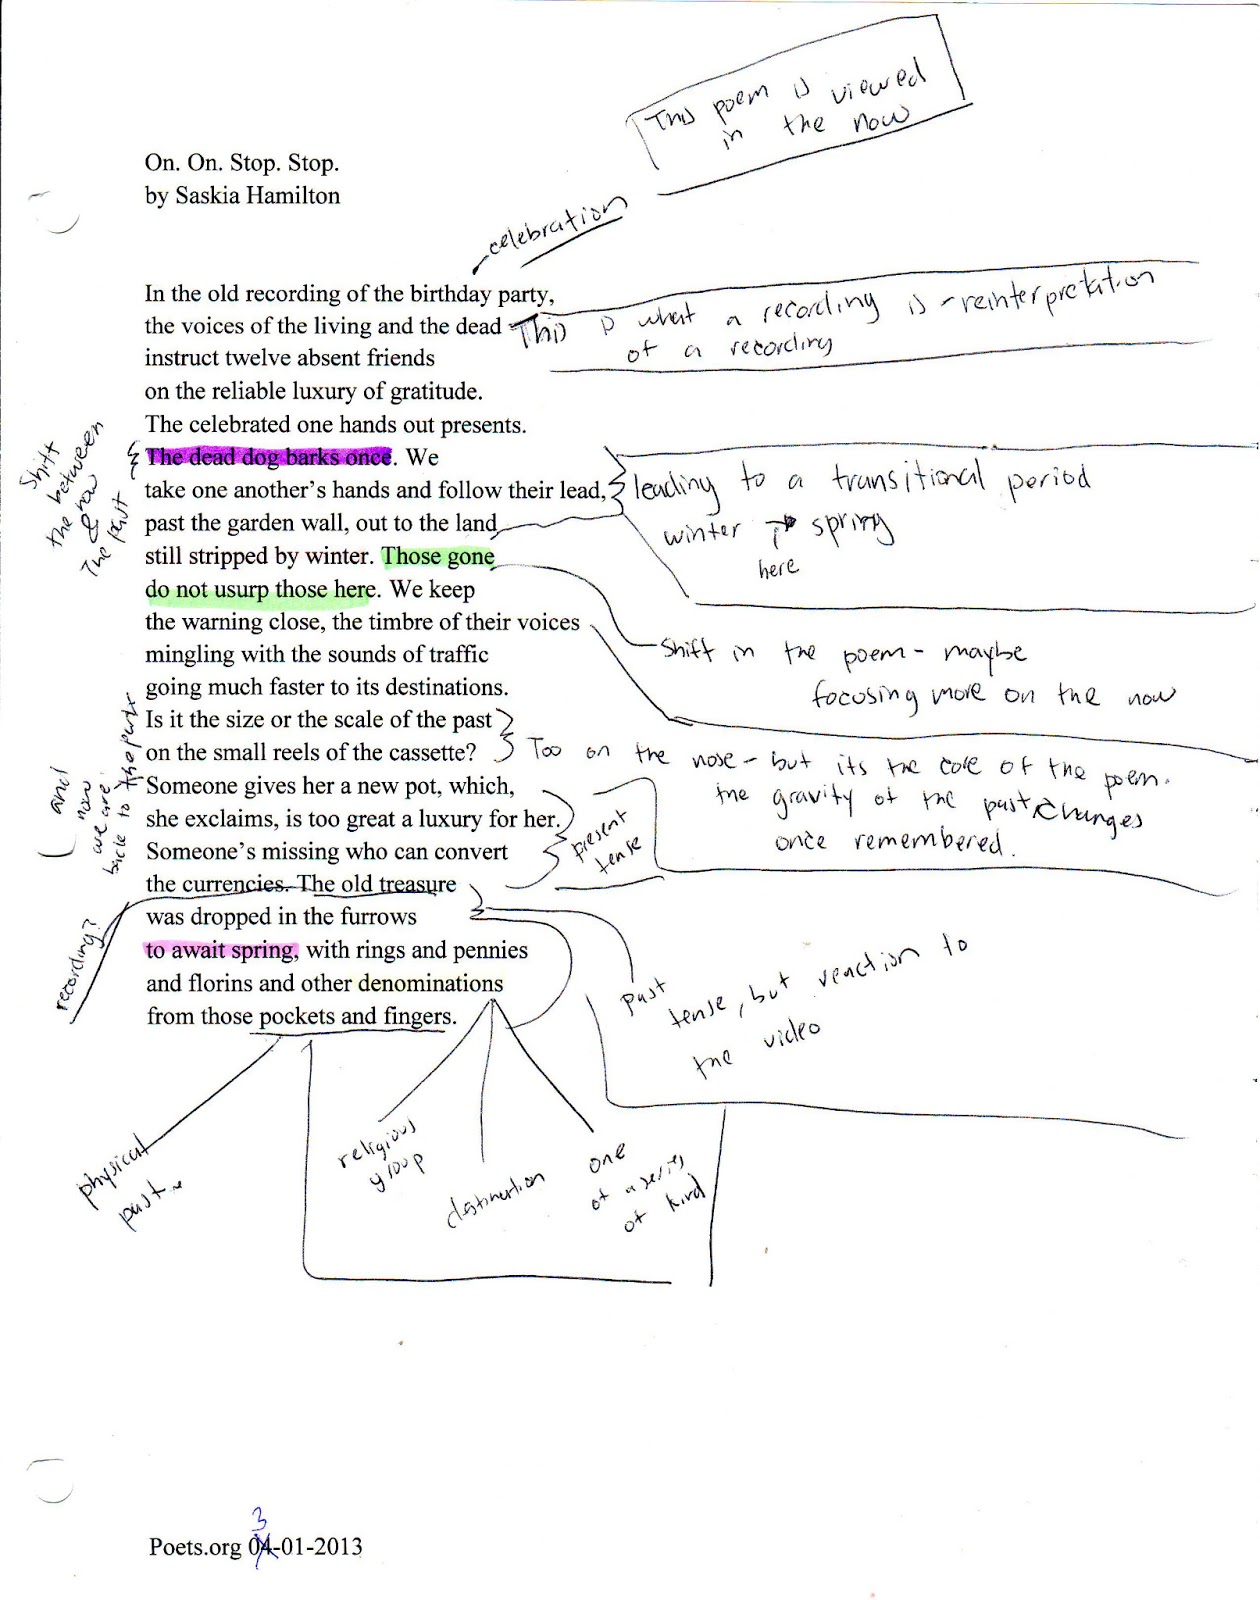 This poem is viewed
in the now
On. On. Stop. Stop.
by Saskia Hamilton
celebration
In the old recording of the birthday party,
the voices of the living and the dead
instruct twelve absent friends
on the reliable luxury of gratitude.
The celebrated one hands out presents.
The dead dog barks once. We
take one another's hands and follow their lead,
past the garden wall, out to the land
still stripped by winter. Those gone
do not usurp those here. We keep
the warning close, the timbre of their voices
mingling with the sounds of traffic
going much faster to its destinations.
Is it the size or the scale of the past
on the small reels of the cassette?
Someone gives her a new pot, which,
she exclaims, is too great a luxury for her.
Someone's missing who can convert
the currencies. The old treasure
was dropped in the furrows
to await spring, with rings and pennies
and florins and other denominations
from those pockets and fingers.
This is what a recording is - reinterpretation
of a recording
Shift
between
the now
&
the past
leading to a transitional period
winter → spring
here
Shift in the poem - maybe
focusing more on the now
Too on the nose - but its the core of the poem.
the gravity of the past changes
once remembered.
and
now
we are
back to the past
present
tense
recording?
past
tense, but reaction to
the video
physical
past
religious
group
destination
one
of a series
of kind
3
Poets.org 04-01-2013